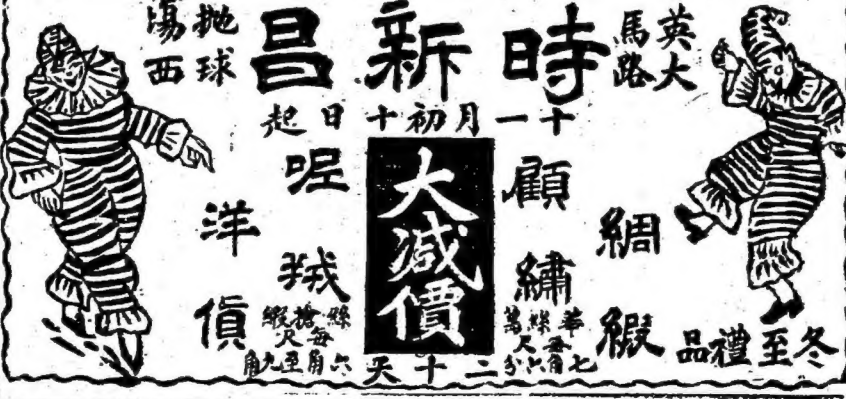 英大馬路
時新昌
拋球塲西
十一月初十日起
綢緞
顧繡
大减價
呢羢
洋貨
冬至禮品
華絲葛每尺七角六分
二十天
每尺六角至九角